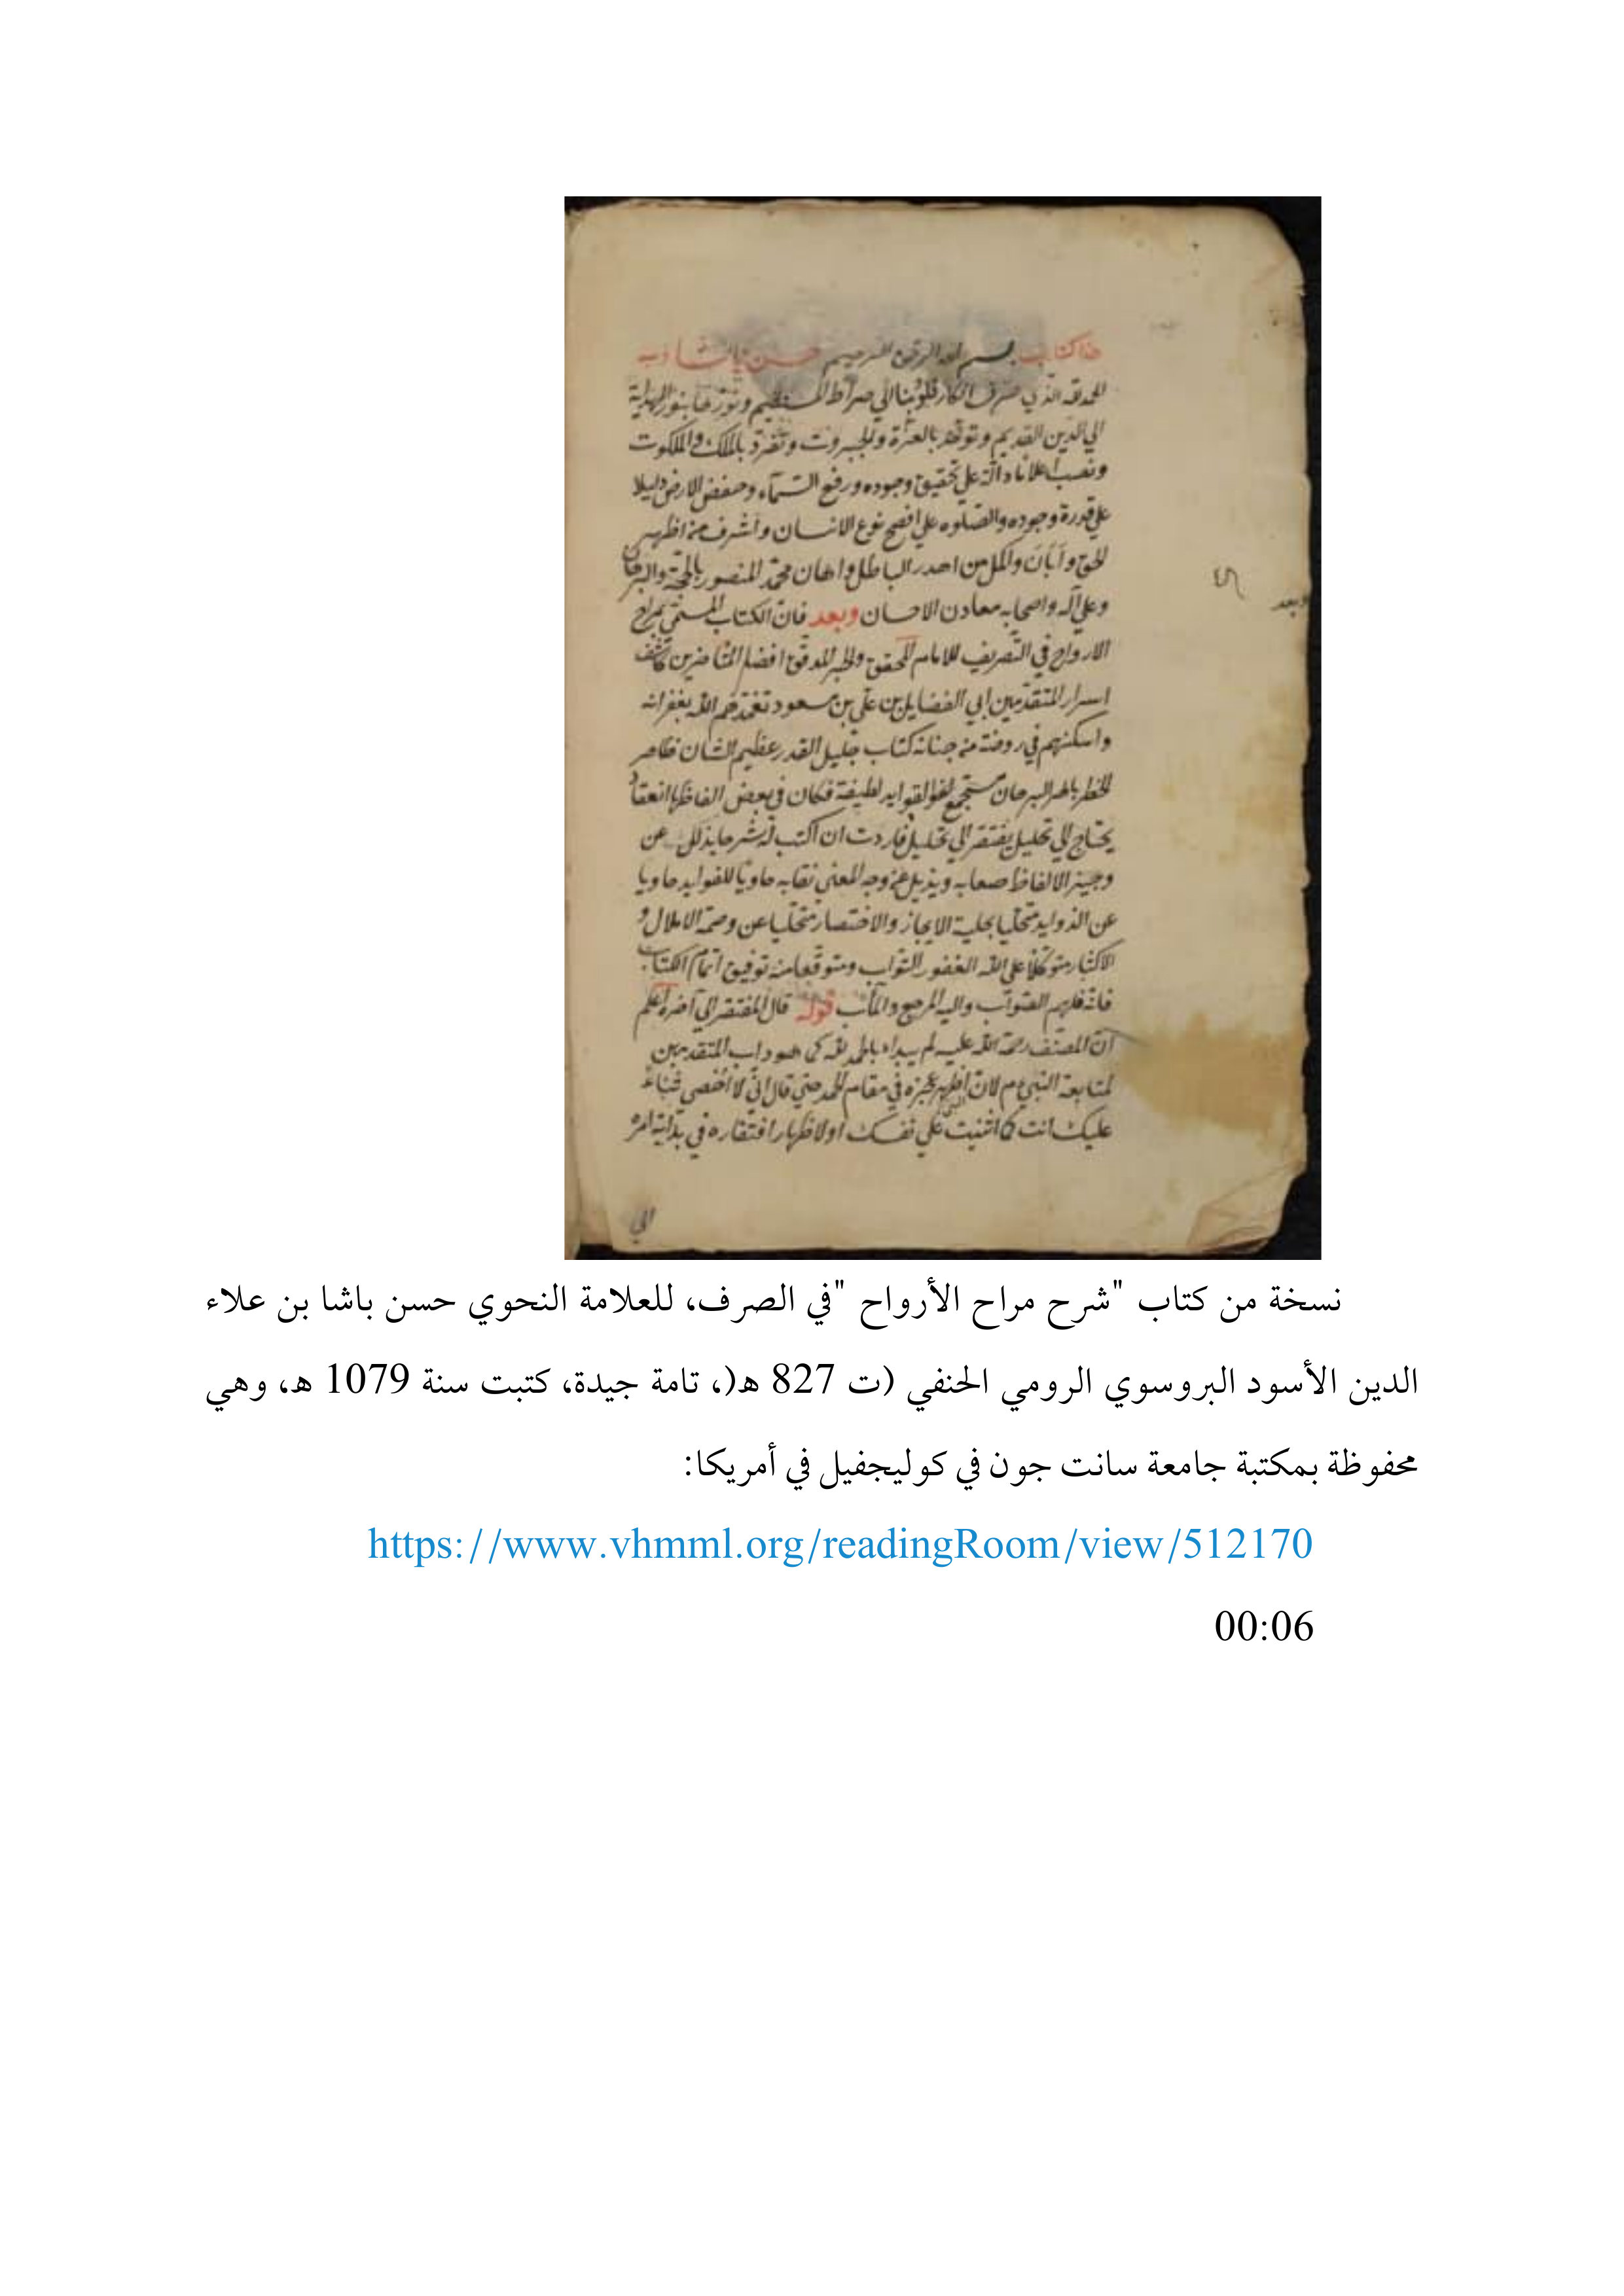 هذا كتاب بسم الله الرحمن الرحيم حسن پاشا
الحمد لله الذي صرف افكار قلوبنا الي صراط المستقيم ونورها بنور الهداية
الي الدين القديم وتوحد بالعزة والجبروت وتفرد بالملك والملكوت
ونصب اعلاما دالة علي تحقيق وجوده ورفع السماء وخفض الارض دليلا
علي قدرة وجوده والصلوه علي افصح نوع الانسان واشرف من اظهر
الحق وابان واكمل من اهدر الباطل واهان محمد المنصور بالحجة والبرهان
وعلي آله واصحابه معادن الاحسان وبعد فان الكتاب المسمي بمراح
الارواح في التصريف للامام المحقق والحبر المدقق افضل المتأخرين كاشف
اسرار المتقدمين ابي الفضايل بن علي بن مسعود تغمدهم الله بغفرانه
واسكنهم في روضة من جنانه كتاب جليل القدر عظيم الشان ظاهر
الخطر باهر البرهان مستجمع لفوايد لطيفة فكان في بعض الفاظها انعقاد
يحتاج الي تحليل يفتقر الي تحليل فاردت ان اكتب له شرحا يذلل عن
وجيز الالفاظ صعابه ويزيل عن وجه المعني نقابه حاويا للفوايد
عن الزوايد متحليا بحلية الايجاز والاختصار متخليا عن وصمة الاملال و
الاكثار متوكلا علي الله الغفور التواب ومتوقعا منه توفيق اتمام الكتاب
فانه ملهم الصواب واليه المرجع والمآب قوله قال المفتقر الي آخره اعلم
ان المصنف رحمة الله عليه لم يبداء بالحمد لله كما هو داب المتقدمين
لمتابعة النبي عم لان اظهر عجزه في مقام الحمد حتي قال اني لا احصي ثناء
عليك انت كما اثنيت علي نفسك او لاظهار افتقاره في بداية امره
الي
وبعد
نسخة من كتاب "شرح مراح الأرواح "في الصرف، للعلامة النحوي حسن باشا بن علاء
الدين الأسود البروسوي الرومي الحنفي (ت 827 ه(، تامة جيدة، كتبت سنة 1079 ه، وهي
محفوظة بمكتبة جامعة سانت جون في كوليجفيل في أمريكا:
https://www.vhmml.org/readingRoom/view/512170
00:06